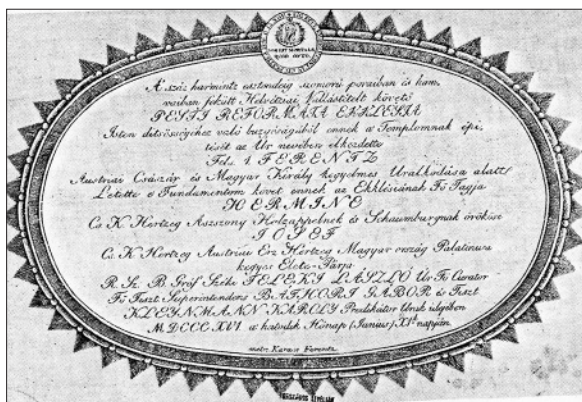 A' száz harmintz esztendeig szomorú poraiban és ham-
vaiban feküdt Helvétziai Vallástételt követő
PESTI REFORMATA EKKLESIA
Isten ditsősségéhez való buzgóságából ennek a Templomnak épí-
tését az Úr nevében elkezdette
Fels. I. FERENTZ
Austriai Császár és Magyar Király kegyelmes Uralkodása alatt
Letette e' Fundamentom követ ennek az Ekklésiának Fő Tagja
HERMINE
Cs. K. Hertzeg Aszszony Holzappelnek és Schaumburgnak örököse
JOSEF
Cs. K. Hertzeg Austriai Erz Hertzeg Magyar ország Palatinusa
kegyes Élete-Párja
R. Sz. B. Gróf Széki TELEKI LASZLÓ Úr Fő Curator
Fő Tiszt. Superintendens BATHORI GABOR és Tiszt.
KLEYNMANN KAROLY Prédikátor Urak idejében
M.DCCC.XVI. a' hatodik Hónap (Junius) XI. napján
metz. Karacs Ferentz